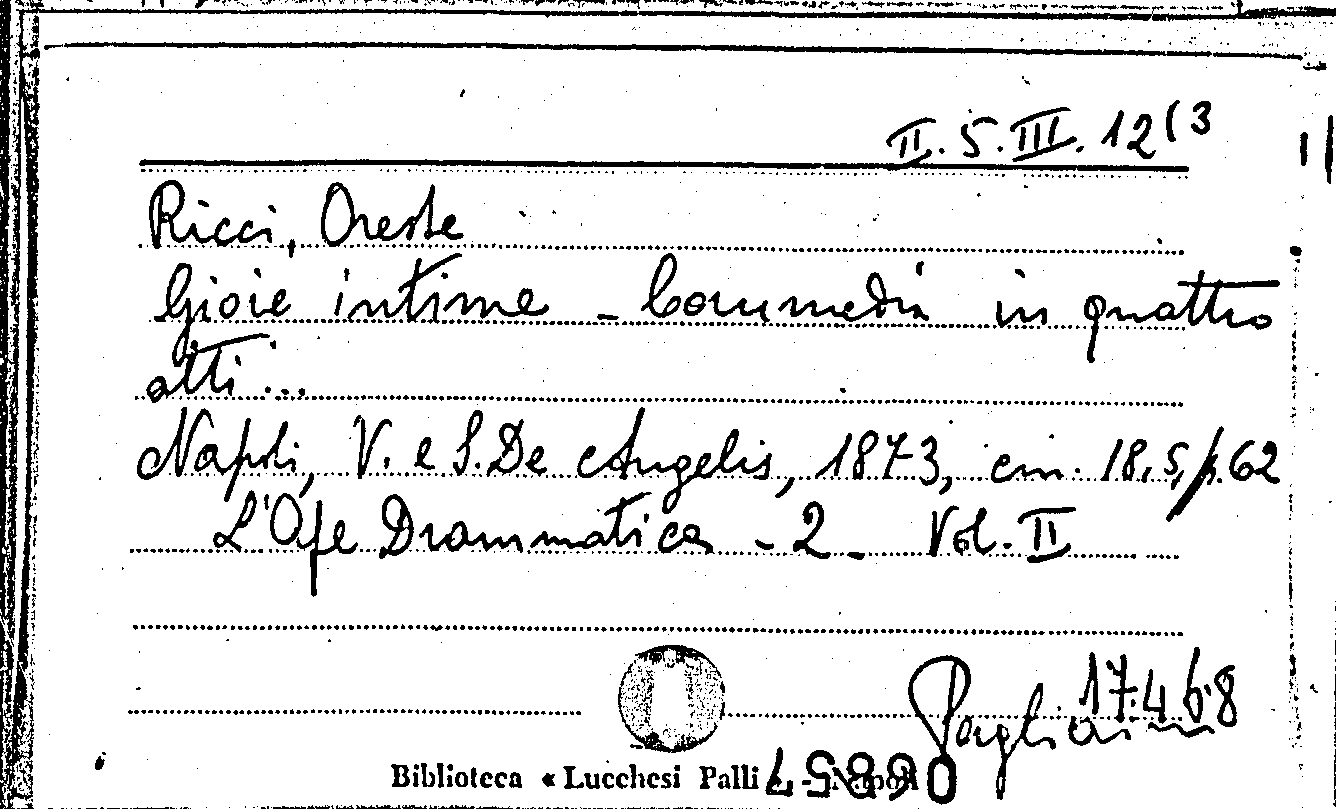 II. 5. III. 12(3
Ricci, Oreste
Gioie intime - Commedia in quattro
atti...
Napoli, V. e S. De Angelis, 1873, cm. 18,5, p. 62
L'Ape Drammatica - 2 - Vol. II
17.4.68
Pagliaini
Biblioteca « Lucchesi Palli » - Napoli
06857